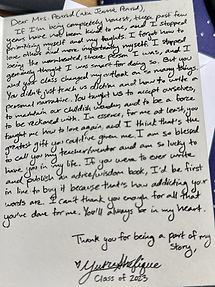 Dear Mrs. Penrod (aka Jamie Penrod),
If I'm being completely honest, these past few
years have not been kind to me, and I stopped
prioritizing myself and my beliefs. I forgot how to
love others and more importantly myself. I stopped
being the unmotivated, insane person I was, and I
genuinely thought I was smart for doing so. But you
and your class changed my outlook on so many things.
You didn't just teach us diction and how to write a
personal narrative. You taught us to accept ourselves,
to maintain our childish wonders, and to be a force
to be reckoned with. In essence, for me at least, you
taught me how to love again, and I think that's the
greatest gift you could've given me. I am so blessed
to call you my teacher/mentor and am so lucky to
have you in my life. If you were to ever write
and publish an advice/wisdom book, I'd be first
in line to buy it because that's how addicting your
words are. I can't thank you enough for all that
you've done for me. You'll always be in my heart.
Thank you for being a part of my
story,
Class of 2023